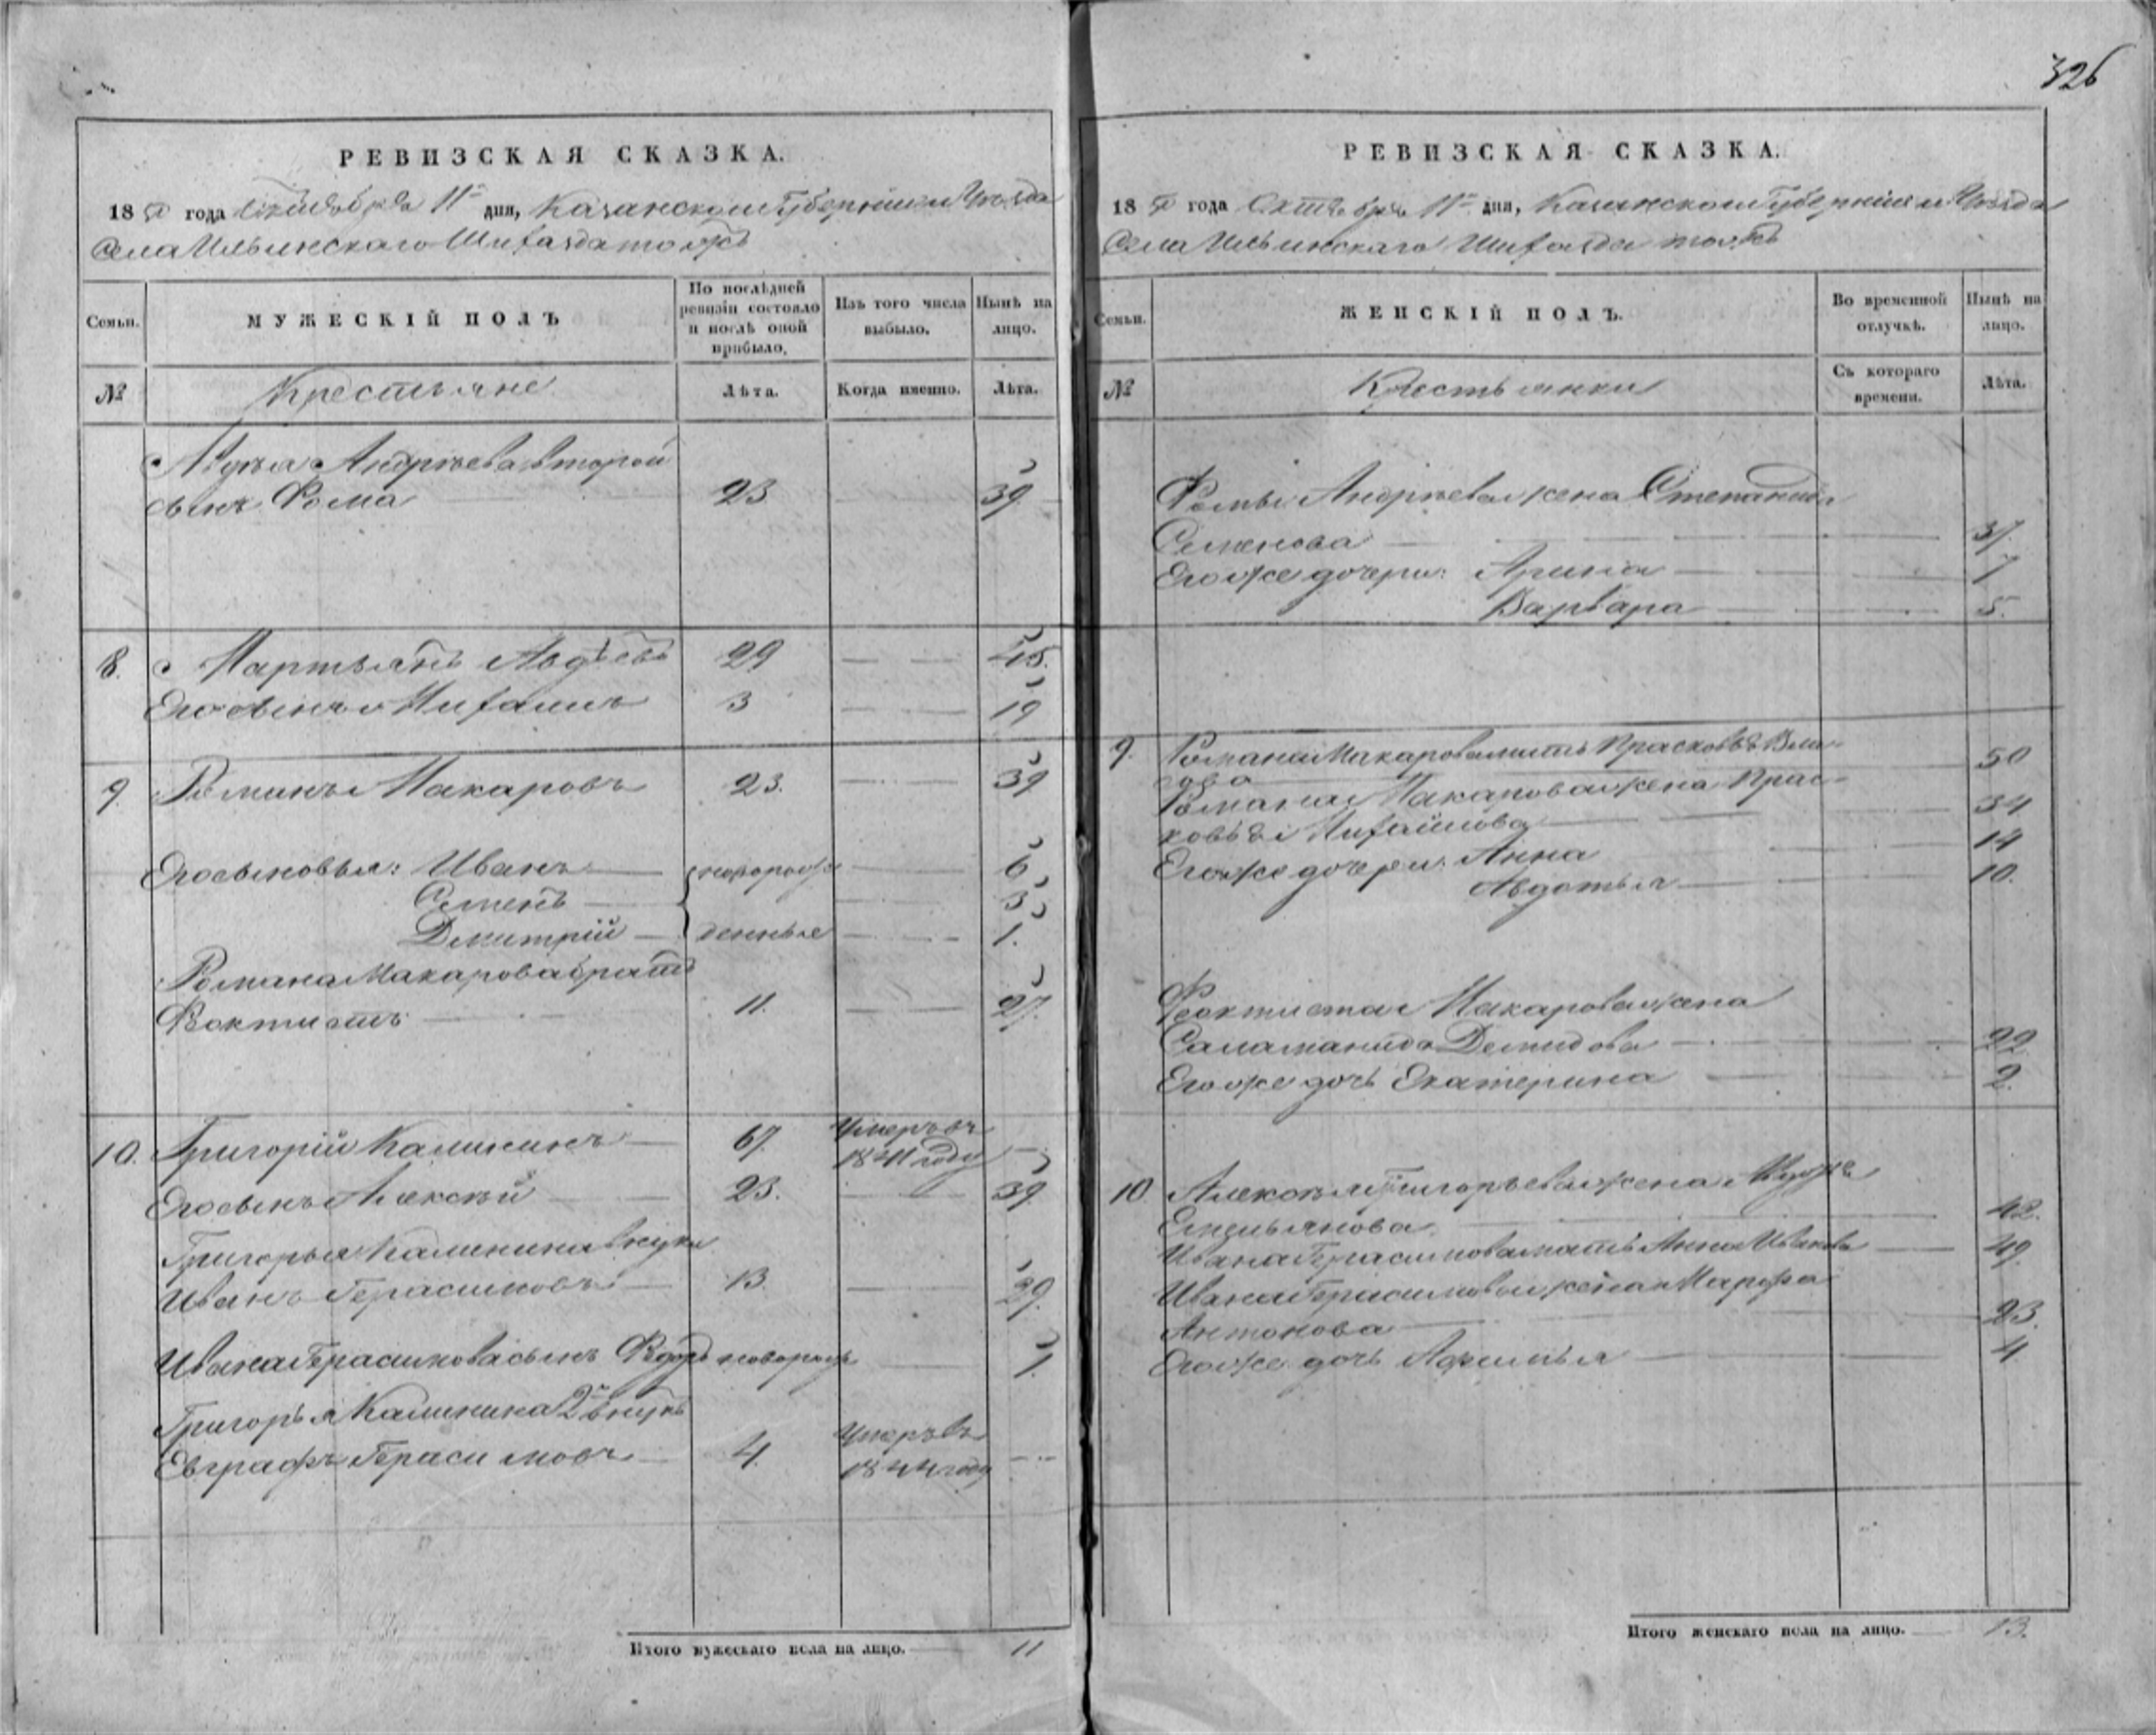 326
РЕВИЗСКАЯ СКАЗКА.
18 50 года Октября 11го дня, Казанской Губерніи и Уѣзда
Села Ильинскаго Шигазда тожъ
Семьи.
МУЖЕСКІЙ ПОЛЪ
По послѣдней ревизіи состояло и послѣ оной прибыло.
Изъ того числа выбыло.
Нынѣ на лицо.
№
Крестьяне
Лѣта.
Когда именно.
Лѣта.
Андрѣева второй
сынъ Фома 23 39
8. Мартьянъ Авдѣевъ 29 45.
Его сынъ Михаилъ 3 19
9. Романъ Макаровъ 23. 39
Его сыновья: Иванъ новорож 6
Семенъ 3
Дмитрій денные 1.
Романа Макарова братъ
Фектистъ 11. 27.
10. Григорій Калининъ 67. Умеръ въ 1841 году
Его сынъ Алексѣй 23. 39.
Григорья Калинина внукъ
Иванъ Герасимовъ 13. 29.
Ивана Герасимова сынъ Федоръ новорож 1.
Григорья Калинина 2й внукъ
Евграфъ Герасимовъ 4. Умеръ въ 1844 году
Итого мужескаго пола на лицо. 11
РЕВИЗСКАЯ СКАЗКА.
18 50 года Октября 11го дня, Казанской Губерніи и Уѣзда
Села Ильинскаго Шигазда тожъ
Семьи.
ЖЕНСКІЙ ПОЛЪ.
Во временной отлучкѣ.
Нынѣ на лицо.
№
Крестьянки
Съ котораго времени.
Лѣта.
Фомы Андрѣева жена Степанида
Семенова 37.
Его же дочери: Арина 7
Варвара 5.
9. Романа Макарова мать Прасковья
50
Романа Макарова жена Прас-
ковья Михайлова 34
Его же дочери: Анна 14
Авдотья 10.
Феоктиста Макарова жена
Саламанида Демидова 22
Его же дочь Екатерина 2.
10. Алексѣя Григорьева жена
Емельянова 42.
Ивана Герасимова мать Анна Иванова 49.
Ивана Герасимова жена Марфа
Антонова 23.
Его же дочь Афимья 4
Итого женскаго пола на лицо. 13.